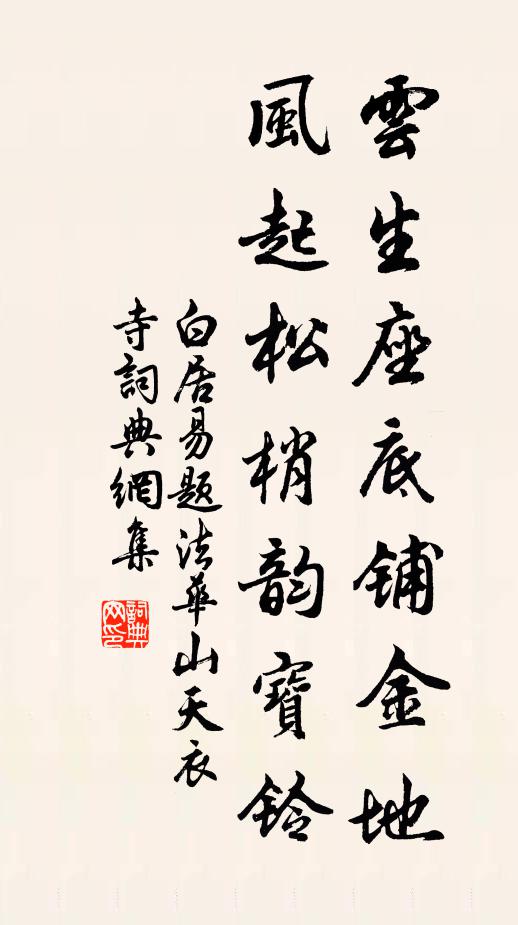 雲生座底鋪金地
風起松梢韵寶鈴
白居易題法華山天衣
寺詞典網集
詞典
网印